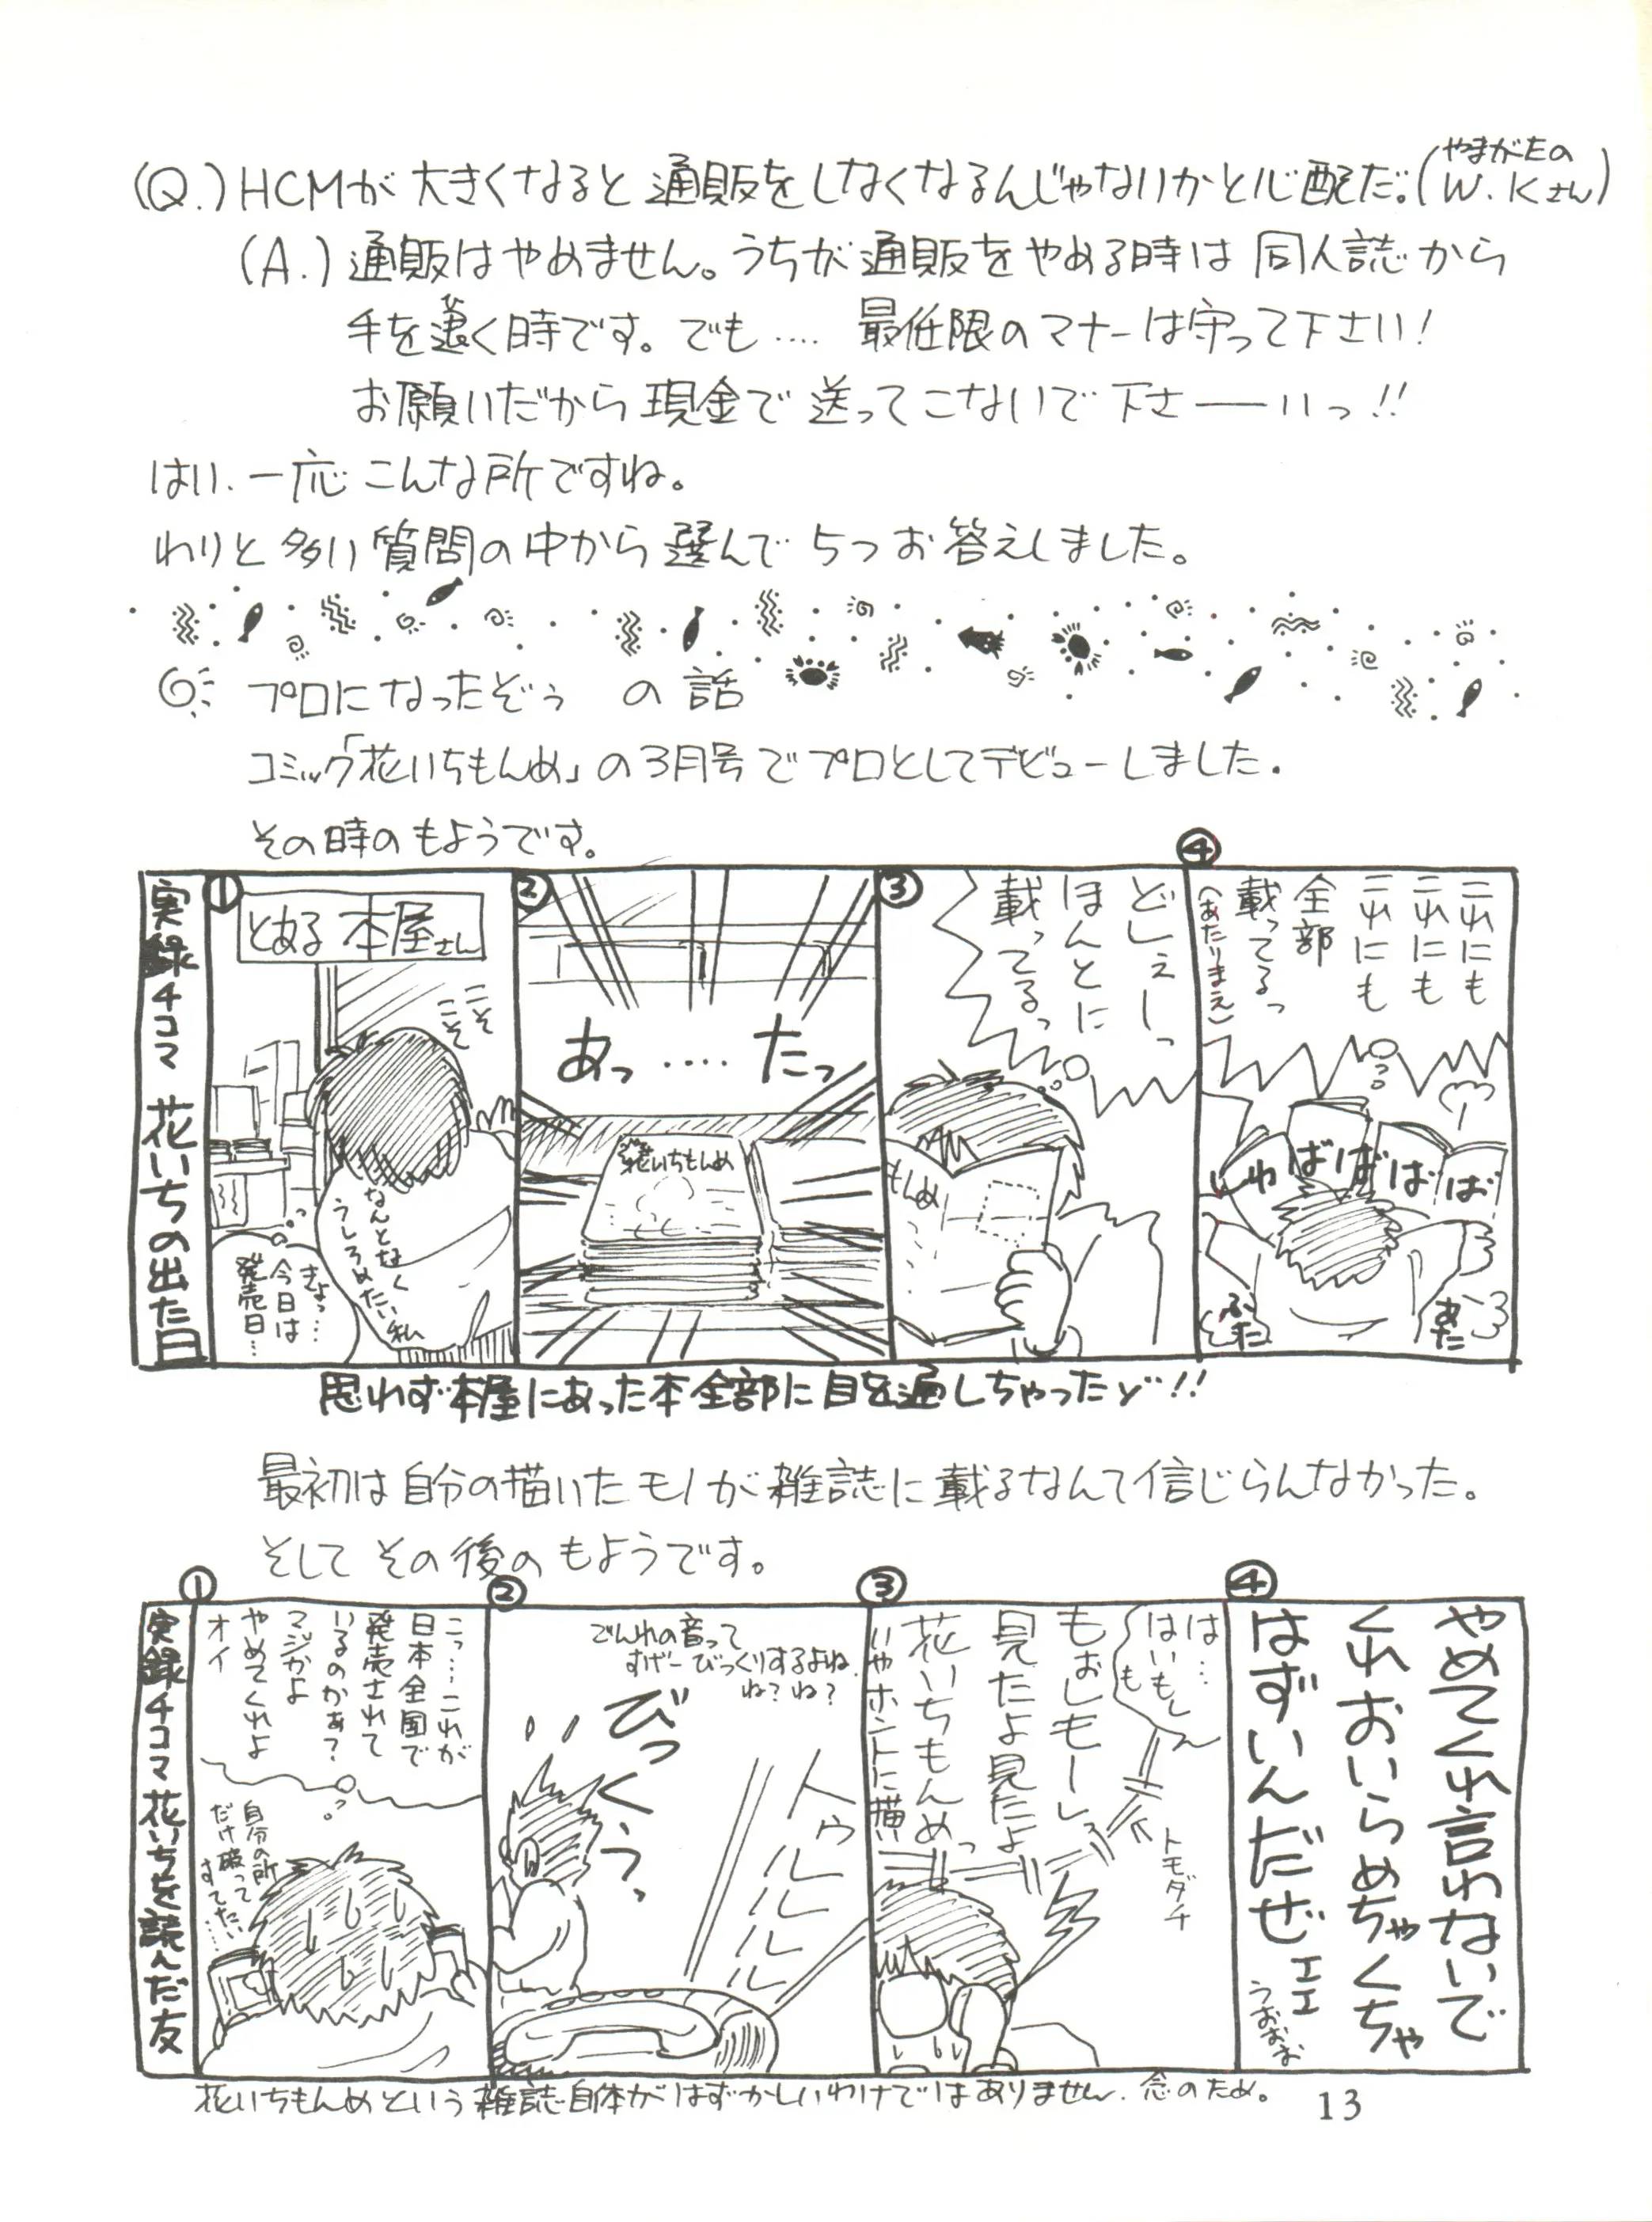 (Q.) HCMが大きくなると通販をしなくなるんじゃないかと心配だ。(やまがたの W.Kさん)
(A.) 通販はやめません。うちが通販をやめる時は同人誌から
手を退く時です。でも‥‥ 最低限のマナーは守って下さい!
お願いだから現金で送ってこないで下さ――いっ!!
はい、一応こんな所ですね。
わりと多い質問の中から選んで5つお答えしました。
プロになったぞぅ の話
コミック「花いちもんめ」の3月号でプロとしてデビューしました.
その時のもようです。
実録4コマ 花いちの出た日
①
とある本屋さん
こそ
こそ
なんとなく
うしろめたい私
きょっ…
今日は
発売日…
②
あっ‥‥たっ
花いちもんめ
③
どしぇーっ
ほんとに
載ってるっ
もんめ
④
これにも
これにも
これにも
全部
載ってるっ
(あたりまえ)
しゅばばばば
ふた
あた
思わず本屋にあった本全部に目を通しちゃったど!!
最初は自分の描いたモノが雑誌に載るなんて信じらんなかった。
そしてその後のもようです。
実録4コマ 花いちを読んだ友
①
こっ…これが
日本全国で
発売されて
いるのかぁ?
マジかよ
やめてくれよ
オイ
自分の所
だけ破って
すてたい…
②
でんわの音って
すげーびっくりするよね
ね?ね?
びっくぅっ
トゥルルルルル
③
は…
はいもし
も
もぉしもーしっ
見たよ見たよ
花いちもんめっ
いやホントに描い
トモダチ
④
やめてくれ言わないで
くれおいらめちゃくちゃ
はずいんだぜェェ
うおおお
花いちもんめという雑誌自体がはずかしいわけではありません.念のため。
13